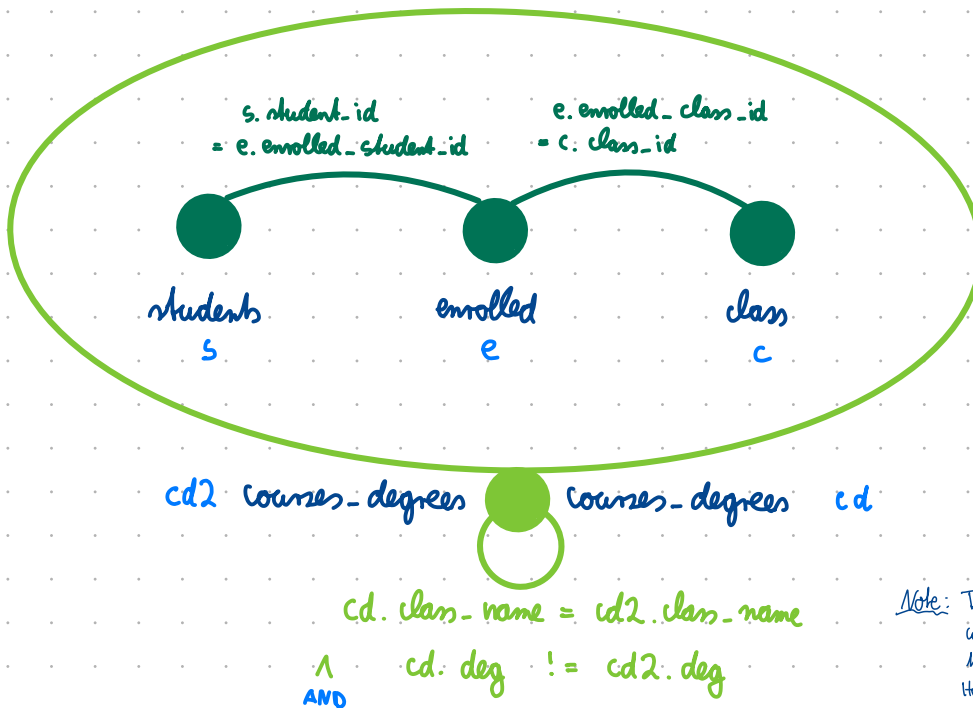 s. student_id
= e. enrolled_student_id
e. enrolled_class_id
= c. class_id
students
enrolled
class
s
e
c
cd2 courses_degrees
courses_degrees cd
cd. class_name = cd2. class_name
∧ cd. deg != cd2. deg
AND
Note: